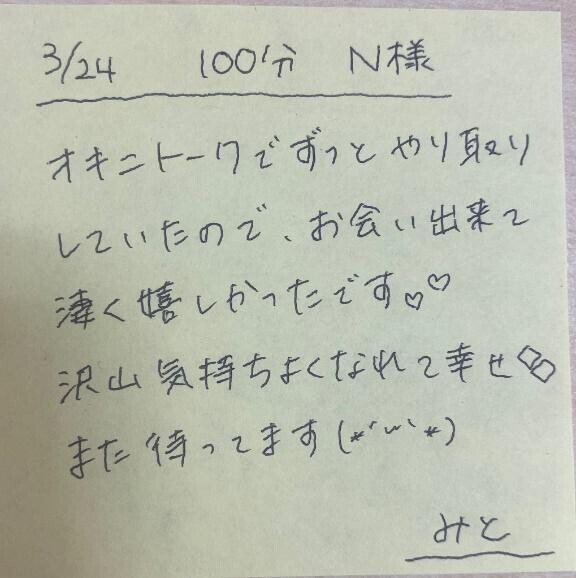 3/24 100分 N様
オキニトークでずっとやり取り
していたので、お会い出来て
凄く嬉しかったです♡♡
沢山気持ちよくなれて幸せ
また待ってます(*´˘`*)
みと